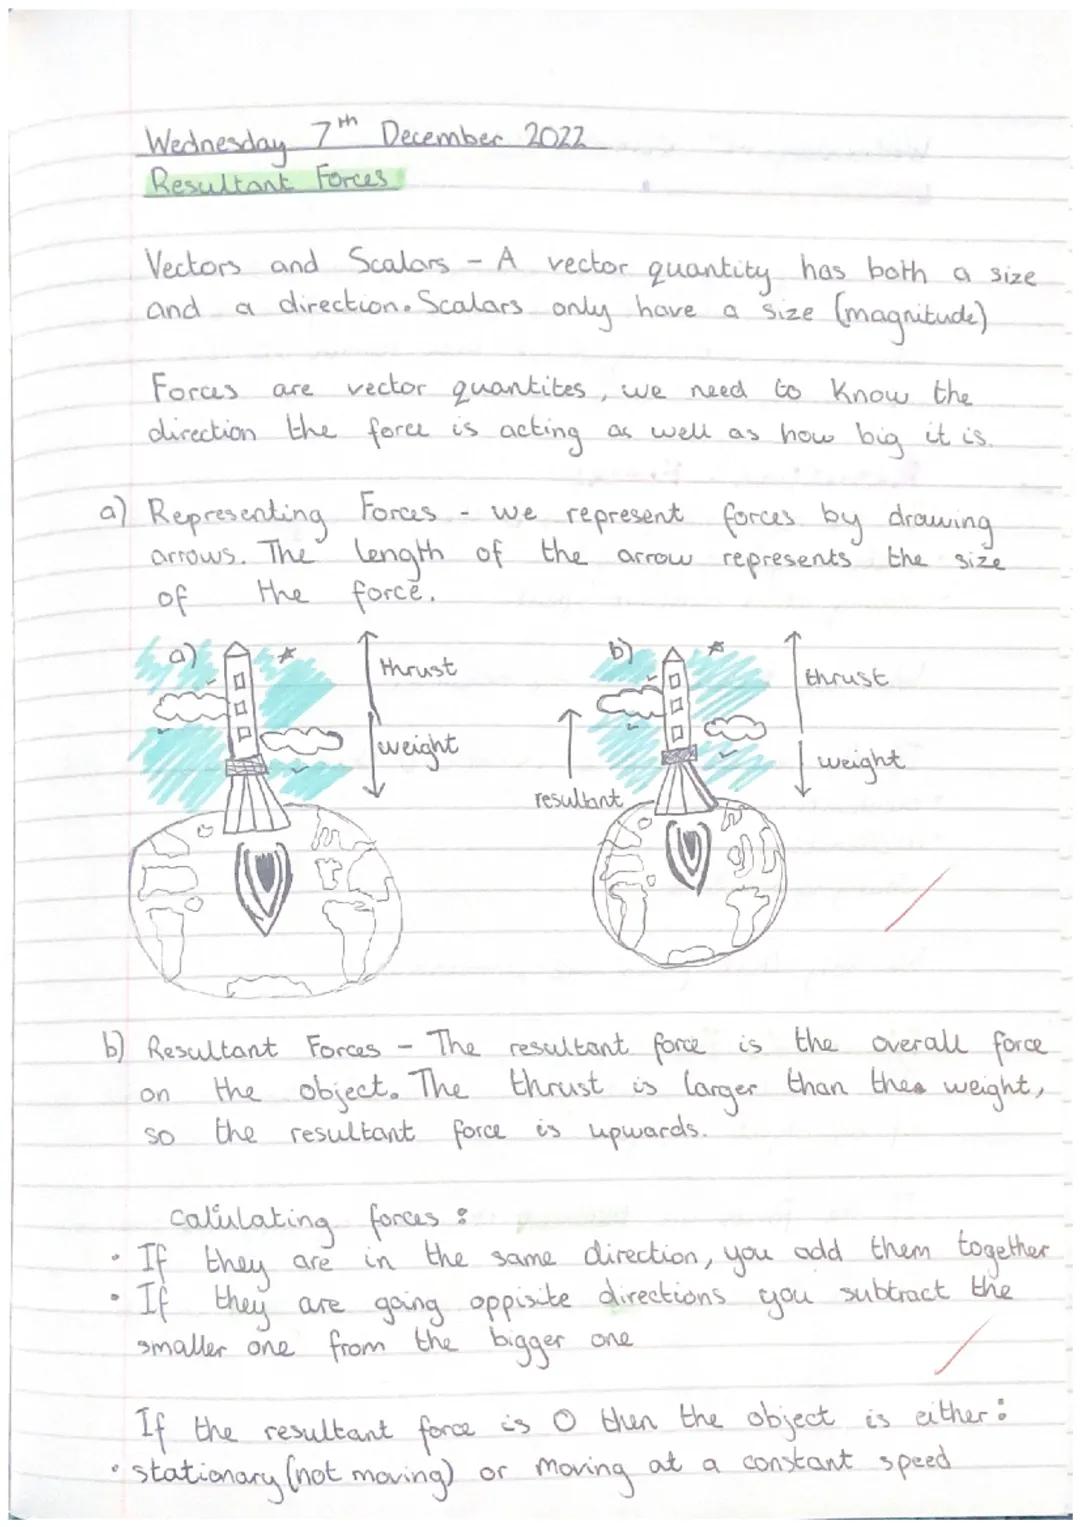 Wednesday 7th December 2022
Resultant Forces
Vectors and Scalars - A vector quantity has both a size
and a direction. Scalars only have a size (magnitude)
Forces are vector quantites, we need to know the
direction the force is acting as well as how big it is.
a) Representing Forces - we represent forces by drawing
arrows. The length of the arrow represents the size
of the force.
a)
thrust
weight
b)
thrust
weight
resultant
b) Resultant Forces - The resultant force is the overall force
on the object. The thrust is larger than the weight,
so the resultant force is upwards.
calculating forces:
• If they are in the same direction, you add them together
• If they are going oppisite directions you subtract the
smaller one from the bigger one
If the resultant force is 0 then the object is either:
• stationary (not moving) or moving at a constant speed